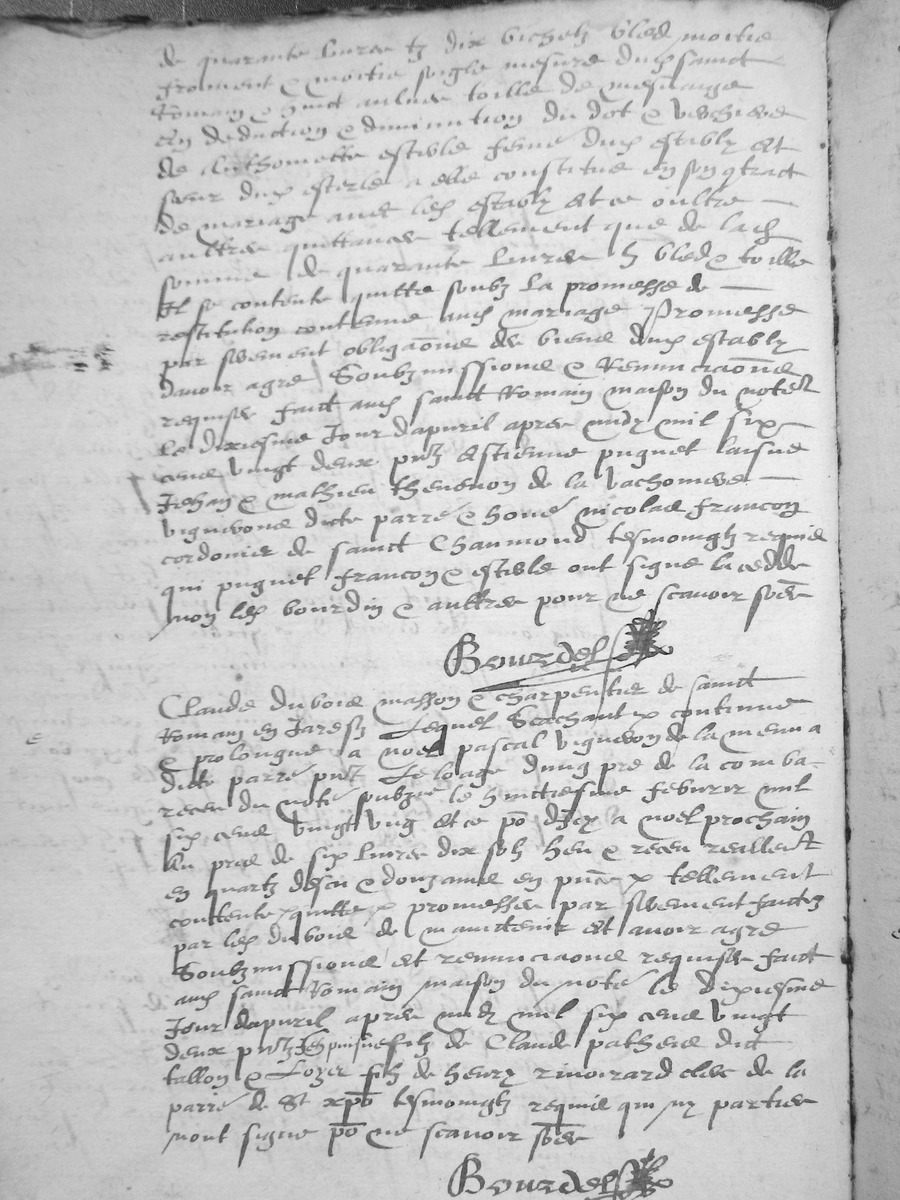 de quarante livres tz dix bichetz bled moitie
froment & moitie seigle mesure dud sainct
Romain & huict aulnes toille de mesnaige
En deduction & diminution du dot & verchiere
de Anthomette estable feme dud estably et
sœur dud esterle a elle constitue en son contract
de mariage avec led estably et ce oultre
aultres quittances tellement que de lad
somme de quarante livres tz bled & toille
Il se contente quitte soubz la promesse de
restitution contenue aud mariage Promesse
par serement obligaōne de biens dud estably
davoir agre Soubzmissions & Renunciaōns
requises faict aud sainct Romain maison du notere
Le dixiesme Jour dapvril apres midy mil six
cens vingt deux pntz Estienne puguet laisne
Jehan & mathieu thevenon de la vachoniere
vignerons dicte parre & honē nicolas francon
cordonier de sainct Chaumond tesmoingtz requis
qui puguet francon & estable ont signe la cedde
non led bourdin & aultres pour ne scavoir ____
Bourdel
Claude dubois masson & charpentier de sainct
Romain en Jarestz Lequel Scachant & continue
& prolongue a noel pascal vigneron de la menna
dicte parre pnt Le loage dung pre de la comba
receu du notē soubzne le huictiesme febvrir mil
six cens vingt ung et ce po dicy a noel prochain
Au pris de six livres dix solz heu & receu reallemt
en quartz descu & douzains en pnce & tellement
contente quitte & promesses par serement faictz
par led dubois de maintenir et avoir agre
Soubzmissions et renunciaōns requises faict
aud sainct Romain maison du notē le dixiesme
Jour dapvril apres midy mil six cens vingt
deux pntz Jeh puisne filz de Claude pathene dict
tallon & Lozer filz de henry rivoirard clerc de la
parre de St xpō tesmoingtz requis qui ny parties
nont signe po ne scavoir
Bourdel